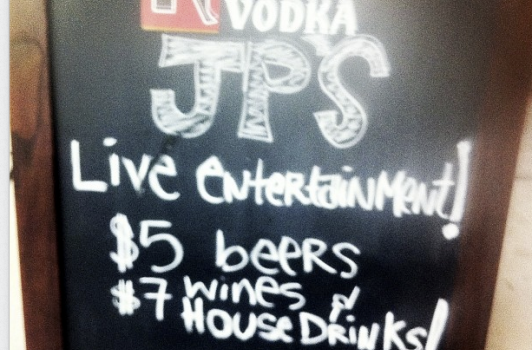 VODKA
JPS
Live entertainment!
$5 beers
$7 wines &
House Drinks!